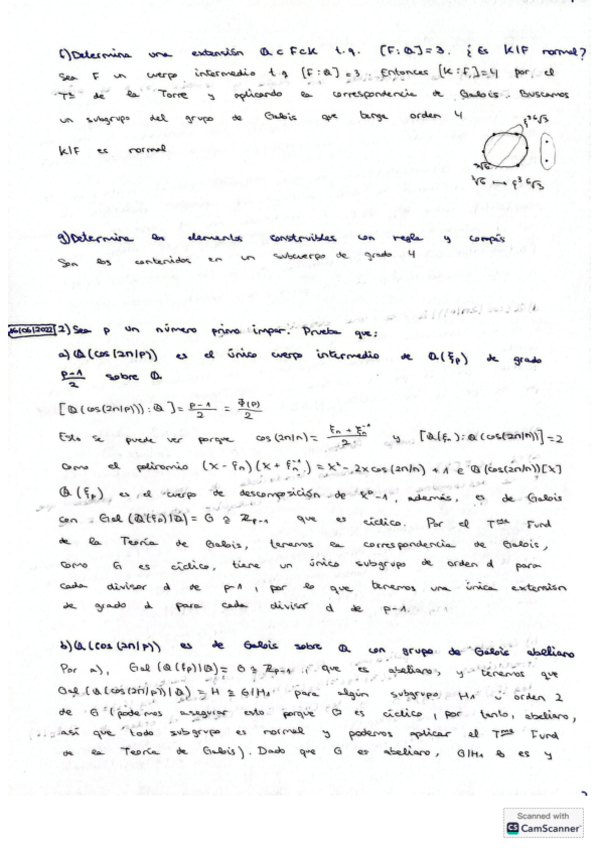 f) Determina una extensión Q ⊂ F ⊂ K t.q. [F:Q]=3. ¿Es K|F normal?
Sea F un cuerpo intermedio t.q [F:Q]=3. Entonces [K:F]=4 por el
Tª de la Torre y aplicando la correspondencia de Galois. Buscamos
un subgrupo del grupo de Galois que tenga orden 4
K|F es normal
g) Determina los elementos construibles con regla y compás
Son los contenidos en un subcuerpo de grado 4
16/06/2022 2) Sea p un número primo impar. Prueba que:
a) Q(cos(2π/p)) es el único cuerpo intermedio de Q(ξp) de grado
p-1/2 sobre Q
[Q(cos(2π/p)):Q] = p-1/2 = Φ(p)/2
Esto se puede ver porque cos(2π/n) = ξn + ξn⁻¹/2 y [Q(ξn):Q(cos(2π/n))]=2
Como el polinomio (x-ξn)(x+ξn⁻¹) = x²-2xcos(2π/n)+1 ∈ Q(cos(2π/n))[x]
Q(ξp), es el cuerpo de descomposición de xᵖ-1, además, es de Galois
con Gal(Q(ξp)|Q) = G ≅ Zp-1 que es cíclico. Por el Tᵐᵃ Fund
de la Teoría de Galois, tenemos la correspondencia de Galois,
como G es cíclico, tiene un único subgrupo de orden d para
cada divisor d de p-1, por lo que tenemos una única extensión
de grado d para cada divisor d de p-1.
b) Q(cos(2π/p)) es de Galois sobre Q con grupo de Galois abeliano
Por a), Gal(Q(ξp)|Q) = G ≅ Zp-1, que es abeliano, y tenemos que
Gal(Q(cos(2π/p))|Q) = H ≅ G/H1 para algún subgrupo H1 orden 2
de G (podemos asegurar esto porque G es cíclico, por tanto, abeliano,
así que todo subgrupo es normal y podemos aplicar el Tᵐᵃ Fund
de la Teoría de Galois). Dado que G es abeliano, G/H1 lo es y
Scanned with
CS CamScanner